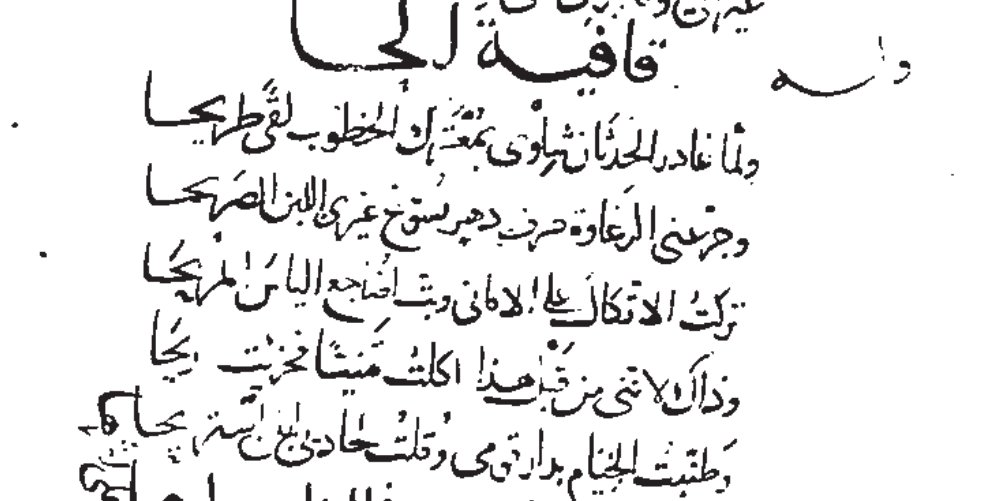 قافية الحا
وله
ولما غادر الحدثان شلوى بمعترك الخطوب لقى طريحا
وجرعنى الرغاوة صرف دهر يسوغ غيرى اللبن الصريحا
تركت الاتكال على الامانى وبت اضاجع الياس المريحا
وذاك لاننى من قبل هذا اكلت تمنيا فخريت ريحا
وطنبت الخيام بدار قومى وقلت لحادى ان تستريحا